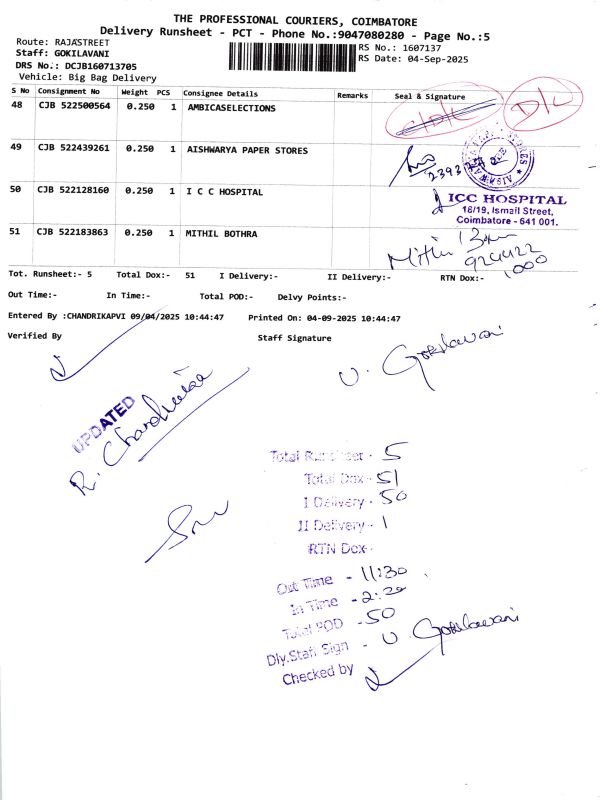 THE PROFESSIONAL COURIERS, COIMBATORE
Delivery Runsheet - PCT - Phone No.:9047080280 - Page No.:5
Route: RAJASTREET
RS No.: 1607137
Staff: GOKILAVANI
RS Date: 04-Sep-2025
DRS No.: DCJB160713705
Vehicle: Big Bag Delivery
S No Consignment No Weight PCS Consignee Details Remarks Seal & Signature
48 CJB 522500564 0.250 1 AMBICASELECTIONS D/L D/L
49 CJB 522439261 0.250 1 AISHWARYA PAPER STORES
50 CJB 522128160 0.250 1 I C C HOSPITAL
ICC HOSPITAL
16/19, Ismail Street,
Coimbatore - 641 001.
51 CJB 522183863 0.250 1 MITHIL BOTHRA
Mithil
924422
1000
Tot. Runsheet:- 5 Total Dox:- 51 I Delivery:- II Delivery:- RTN Dox:-
Out Time:- In Time:- Total POD:- Delvy Points:-
Entered By :CHANDRIKAPVI 09/04/2025 10:44:47 Printed On: 04-09-2025 10:44:47
Verified By Staff Signature
U. Gokilavani
UPDATED
R. Chandrika
Total Runsheet - 5
Total Dox - 51
I Delivery - 50
II Delivery - 1
RTN Dox -
Out Time - 11:30
In Time - 2:20
Total POD - 50
Dly.Staff Sign - U. Gokilavani
Checked by